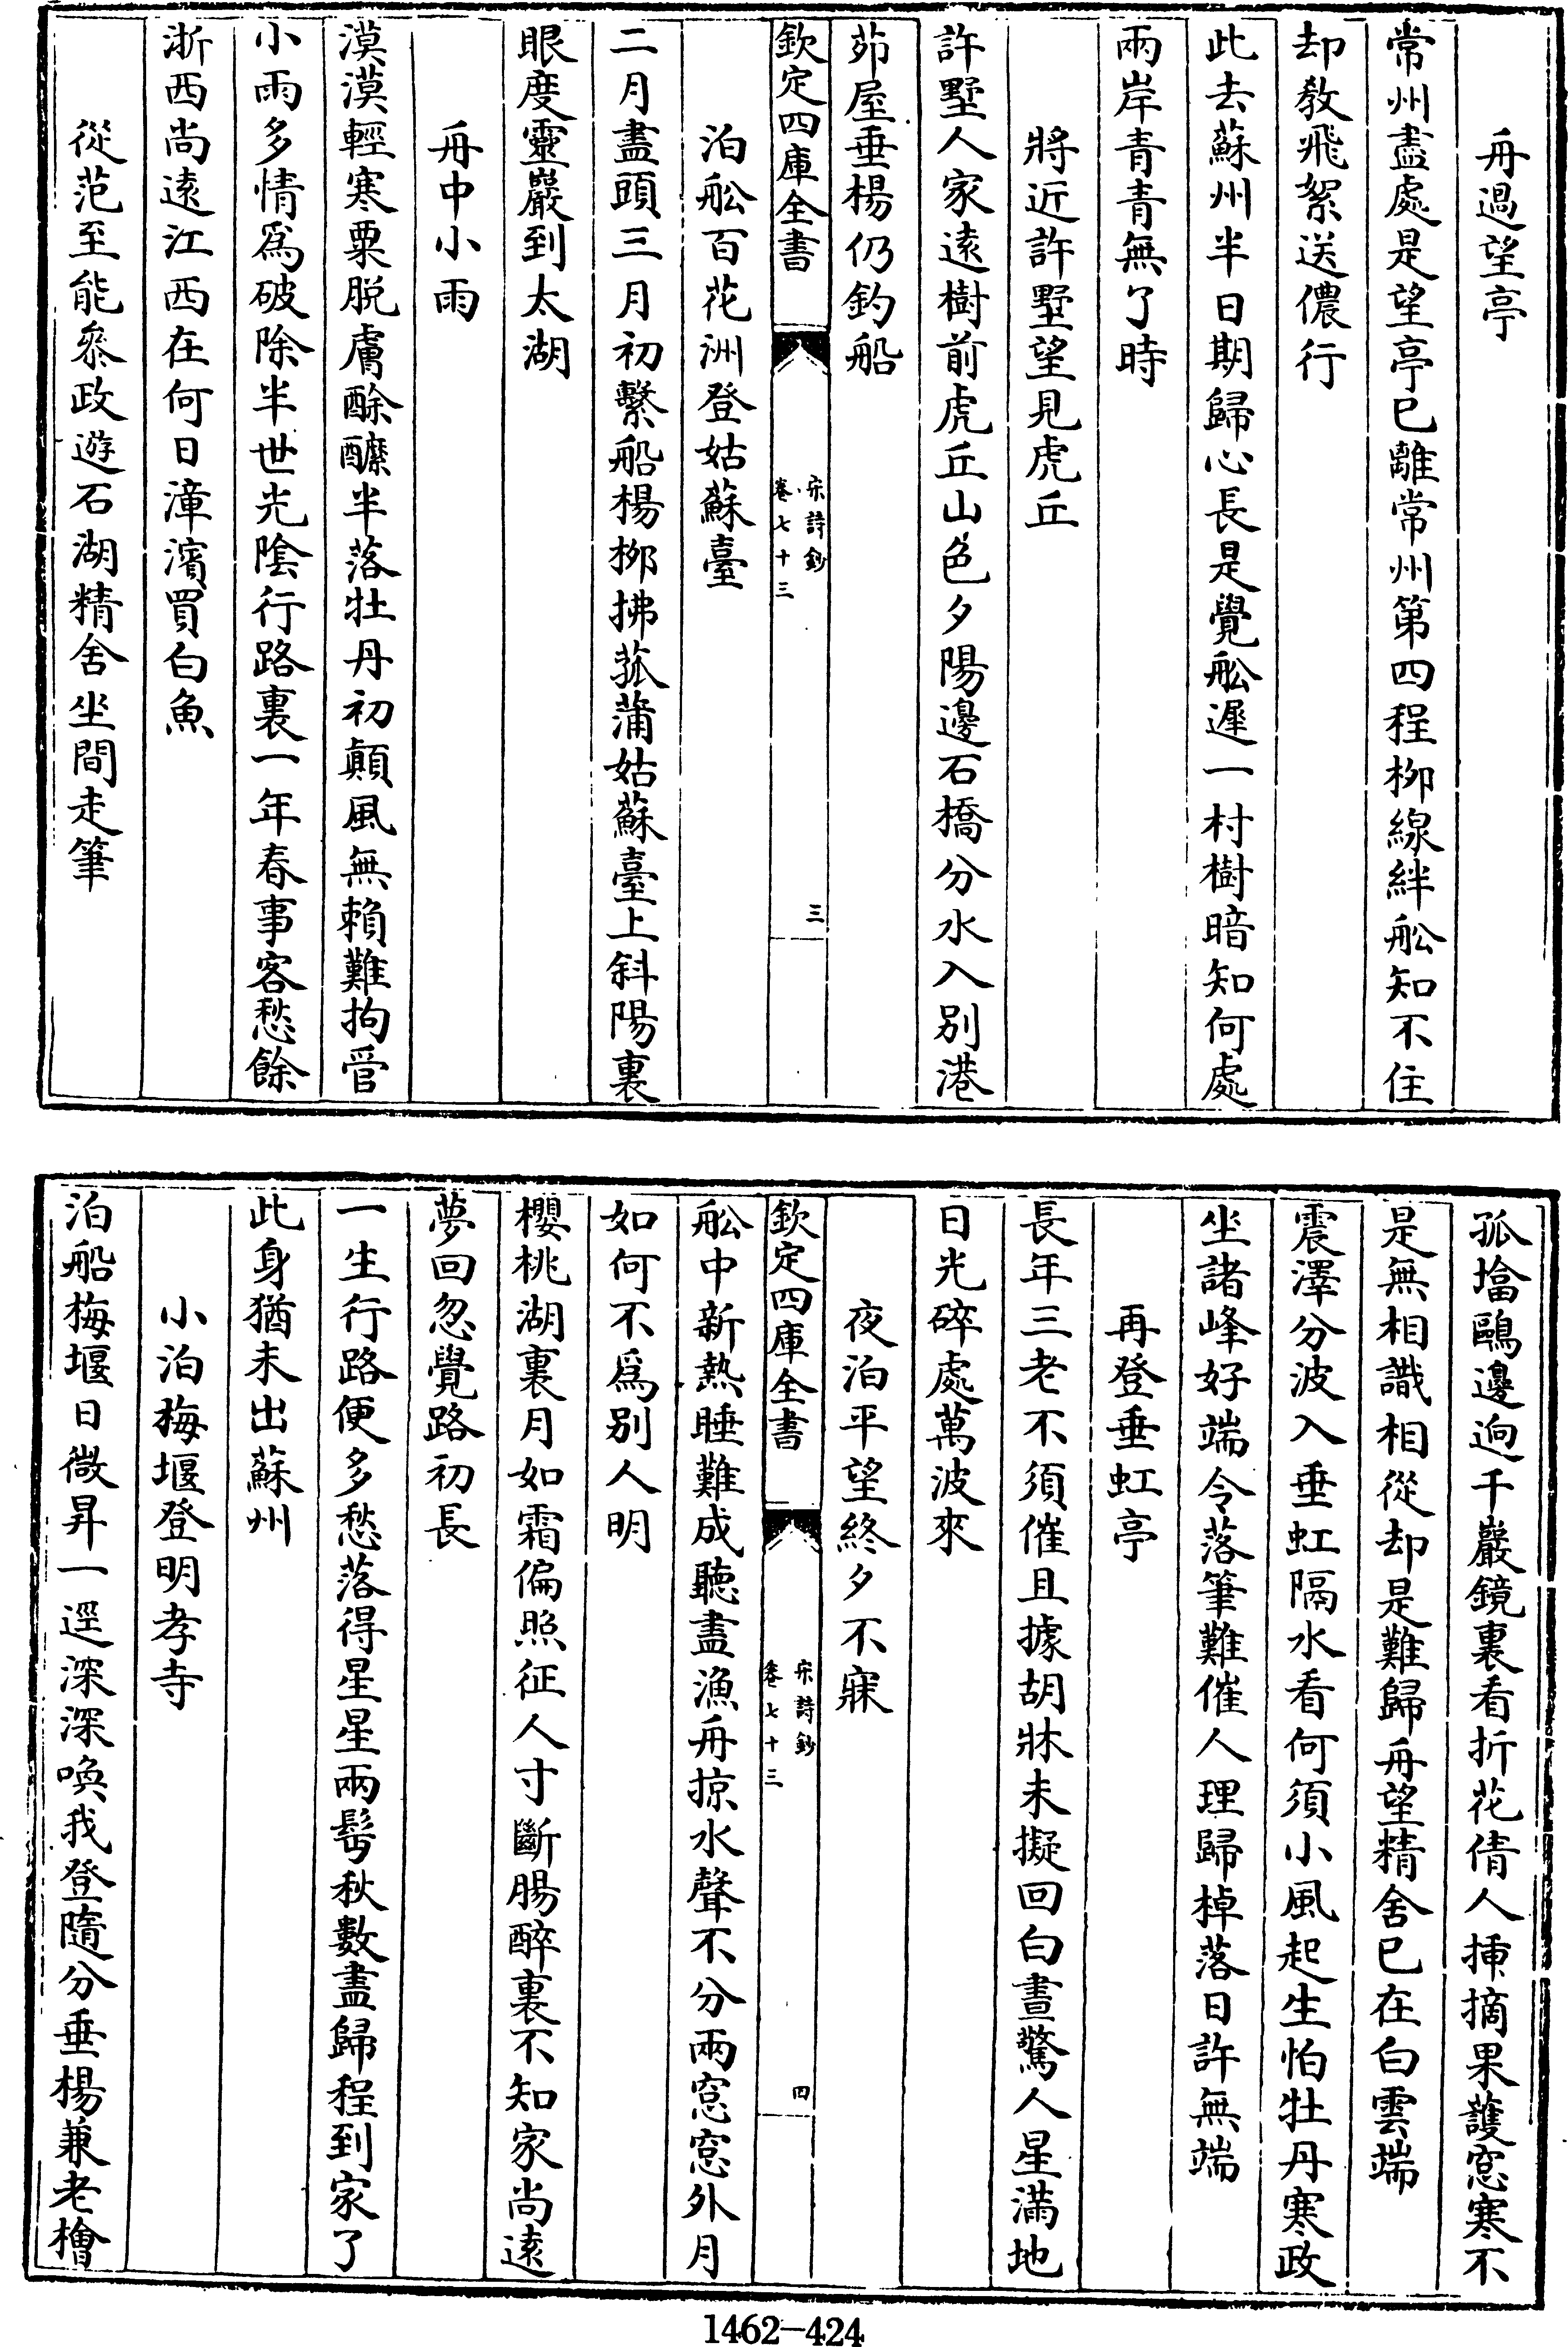 舟過望亭
常州盡處是望亭已離常州第四程栁線絆舩知不住
却教飛絮送儂行
此去蘇州半日期歸心長是覺舩遲一村樹暗知何處
兩岸青青無了時
將近許墅望見虎丘
許墅人家逺樹前虎丘山色夕陽邊石橋分水入别港
茆屋垂楊仍釣船
欽定四庫全書
宋詩鈔
卷七十三
三
泊舩百花洲登姑蘇臺
二月盡頭三月初繫船楊栁拂菰蒲姑蘇臺上斜陽裏
眼度靈巖到太湖
舟中小雨
漠漠輕寒粟脱膚酴醿半落牡丹初顛風無賴難拘管
小雨多情爲破除半世光隂行路裏一年春事客愁餘
浙西尚逺江西在何日漳濱買白魚
從范至能叅政遊石湖精舍坐間走筆
孤墖鷗邊逈千巖鏡裏看折花倩人揷摘果護窓寒不
是無相識相從却是難歸舟望精舍已在白雲端
震澤分波入垂虹隔水看何須小風起生怕牡丹寒政
坐諸峰好端令落筆難催人理歸棹落日許無端
再登垂虹亭
長年三老不須催且據胡牀未擬回白晝驚人星滿地
日光碎處萬波來
夜泊平望終夕不寐
舩中新熱睡難成聽盡漁舟掠水聲不分兩窓窓外月
如何不爲别人明
櫻桃湖裏月如霜偏照征人寸斷腸醉裏不知家尚逺
夢回忽覺路初長
一生行路便多愁落得星星兩髩秋數盡歸程到家了
此身猶未出蘇州
小泊梅堰登明孝寺
泊船梅堰日微昇一逕深深喚我登隨分垂楊兼老檜
欽定四庫全書
宋詩鈔
卷七十三
四
1462-424